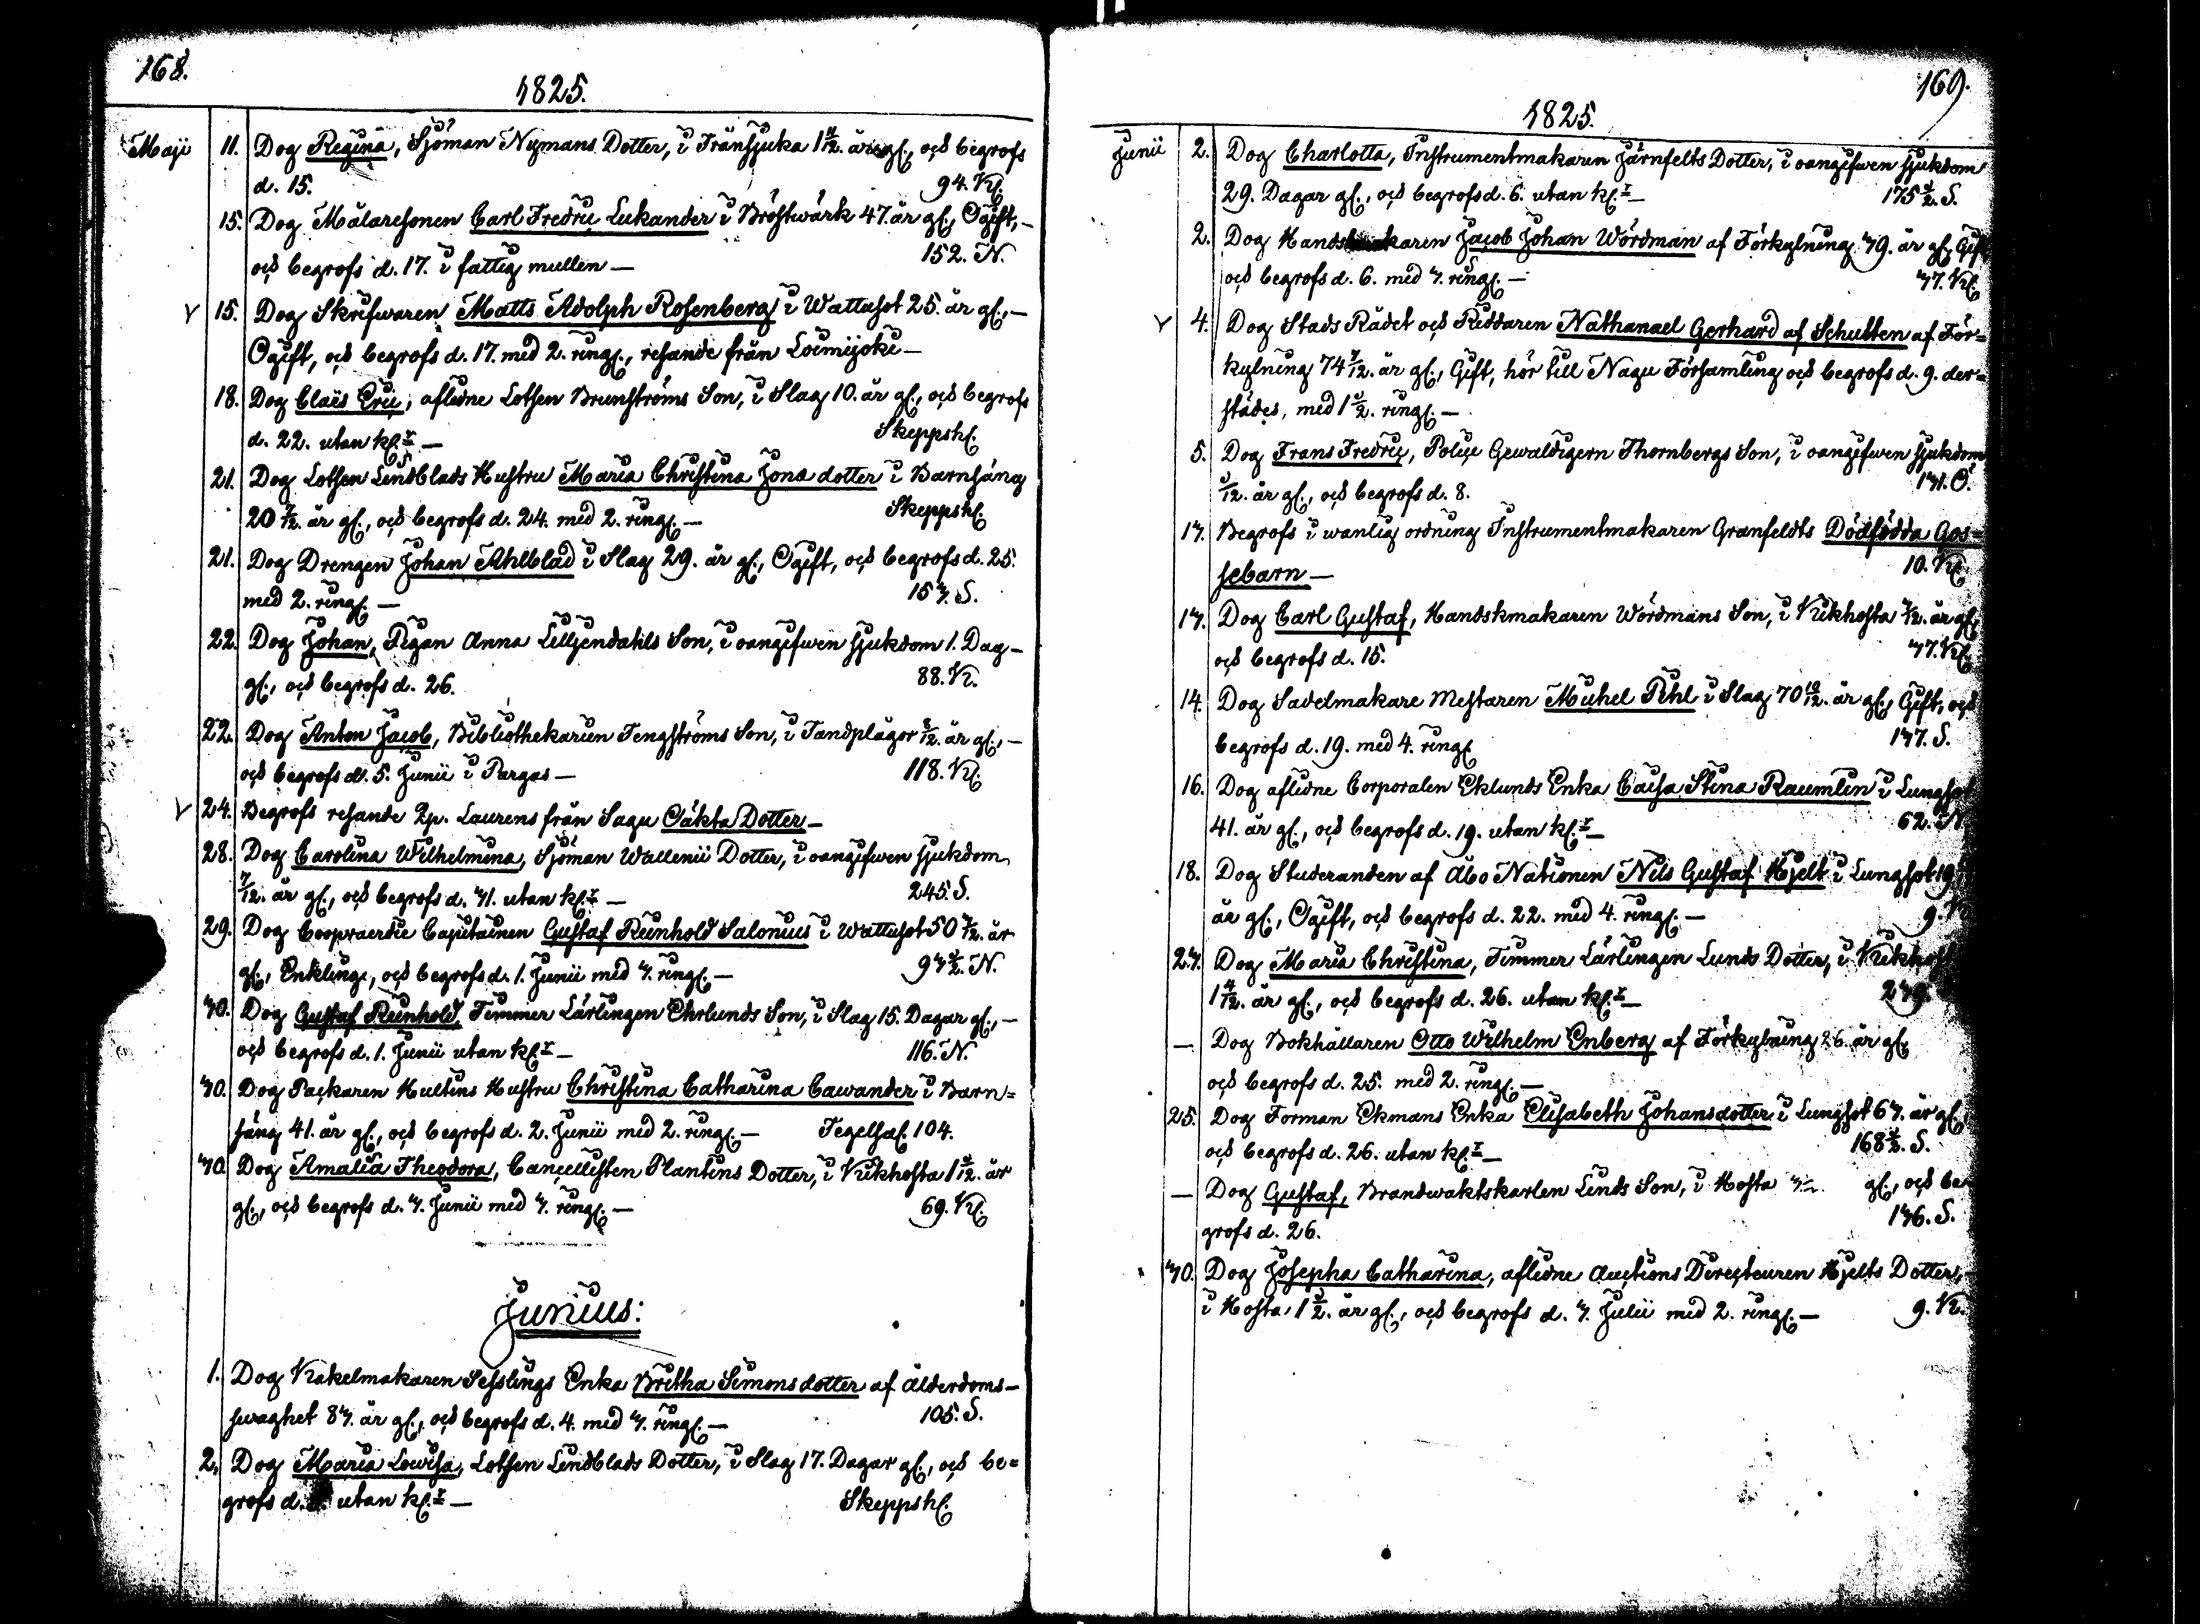 168.
1825.
Maji 11. Dog Regina, Sjöman Nymans Dotter, i Fränsjuka 1 11/12. år gl., och begrofs
d. 15. 94. Kl.
15. Dog Målaresonen Carl Fredric Lukander i Bröstwärk 47. år gl., Ogift, —
och begrofs d. 17. i fattig mullen — 152. N.
15. Dog Skrifwaren Matts Adolph Rosenberg i Wattusot 25. år gl., —
Ogift, och begrofs d. 17. med 2. ringl., resande från Loimijoki —
18. Dog Claës Eric, aflidne Lotsen Brunströms Son, i Slag 10. år gl., och begrofs
d. 22. utan kl.r — Skeppshl.
21. Dog Lotsen Lindblads Hustru Maria Christina Jonsdotter i Barnsäng
20 7/12. år gl., och begrofs d. 24. med 2. ringl. — Skeppshl.
21. Dog Drengen Johan Ahlblad i Slag 29. år gl., Ogift, och begrofs d. 25.
med 2. ringl. — 153. S.
22. Dog Johan, Pigan Anna Liljendahls Son, i oangifwen sjukdom 1. Dag —
gl., och begrofs d. 26. 88. Kl.
22. Dog Anton Jacob, Bibliothekarien Tengströms Son, i Tandplågor 8/12. år gl., —
och begrofs d. 5. Junii i Pargas — 118. Kl.
24. Begrofs resande Zp. Laurens från Sagu Oäkta Dotter —
28. Dog Carolina Wilhelmina, Sjöman Wallenii Dotter, i oangifwen sjukdom
7/12. år gl., och begrofs d. 31. utan kl.r — 245. S.
29. Dog Coopvaerdie Capitainen Gustaf Reinhold Salonius i Wattusot 50 7/12. år
gl., Enkling, och begrofs d. 1. Junii med 3. ringl. — 93 1/2. N.
30. Dog Gustaf Reinhold, Timmer Lärlingen Ehrlunds Son, i Slag 15. Dagar gl., —
och begrofs d. 1. Junii utan kl.r — 116. N.
30. Dog Packaren Hultins Hustru Christina Catharina Cawander i Barn=
säng 41. år gl., och begrofs d. 2. Junii med 2. ringl. — Tegelsal. 104.
30. Dog Amalia Theodora, Cancellisten Plantins Dotter, i Kikhosta 1 3/12. år
gl., och begrofs d. 3. Junii med 3. ringl. — 69. Kl.
Junius:
1. Dog Kakelmakaren Sesslings Enka Britha Simonsdotter af ålderdoms —
swaghet 83. år gl., och begrofs d. 4. med 3. ringl. — 105. S.
2. Dog Maria Lowisa, Lotsen Lindblads Dotter, i Slag 17. Dagar gl., och be=
grofs d. utan kl.r — Skeppshl.
169.
1825.
Junii 2. Dog Charlotta, Instrumentmakaren Järnfelts Dotter, i oangifwen sjukdom
29. Dagar gl., och begrofs d. 6. utan kl.r — 175 1/2. S.
2. Dog Handskmakaren Jacob Johan Wördman af Förkylning 39. år gl., Gift
och begrofs d. 6. med 3. ringl. — 37. Kl.
4. Dog Stads Rådet och Riddaren Nathanael Gerhard af Schultén af För=
kylning 74 7/12. år gl., Gift, hör till Nagu Församling och begrofs d. 9. der=
städes, med 1 1/2. ringl. —
5. Dog Frans Fredric, Police Gewaldigern Thornbergs Son, i oangifwen sjukdom
3/12. år gl., och begrofs d. 8. 131. O.
13. Begrofs i wanlig ordning Instrumentmakaren Granfeldts Dödfödda Gos=
sebarn — 10. Kl.
13. Dog Carl Gustaf, Handskmakaren Wördmans Son, i Kikhosta 3/12. år gl.,
och begrofs d. 15. 37. Kl.
14. Dog Sadelmakare Mestaren Michel Pihl i Slag 70 10/12. år gl., Gift, och
begrofs d. 19. med 4. ringl. 137. S.
16. Dog aflidne Corporalen Eklunds Enka Caisa Stina Raumlin i Lungsot
41. år gl., och begrofs d. 19. utan kl.r — 62. N.
18. Dog Studeranden af Åbo Nationen Nils Gustaf Hjelt i Lungsot 19
år gl., Ogift, och begrofs d. 22. med 4. ringl. — 9. Kl.
23. Dog Maria Christina, Timmer Lärlingen Lunds Dotter, i Kikhosta
1 4/12. år gl., och begrofs d. 26. utan kl.r — 239.
— Dog Bokhållaren Otto Wilhelm Enberg af Förkylning 26. år gl.,
och begrofs d. 25. med 2. ringl. —
25. Dog Forman Ekmans Enka Elisabeth Johansdotter i Lungsot 63. år gl.,
och begrofs d. 26. utan kl.r — 168 1/2. S.
— Dog Gustaf, Brandwaktskarlen Linds Son, i Hosta gl., och be
grofs d. 26. 136. S.
30. Dog Josepha Catharina, aflidne Auctions Directeuren Hjelts Dotter, —
i Hosta 1 1/2. år gl., och begrofs d. 3. Julii med 2. ringl. — 9. Kl.